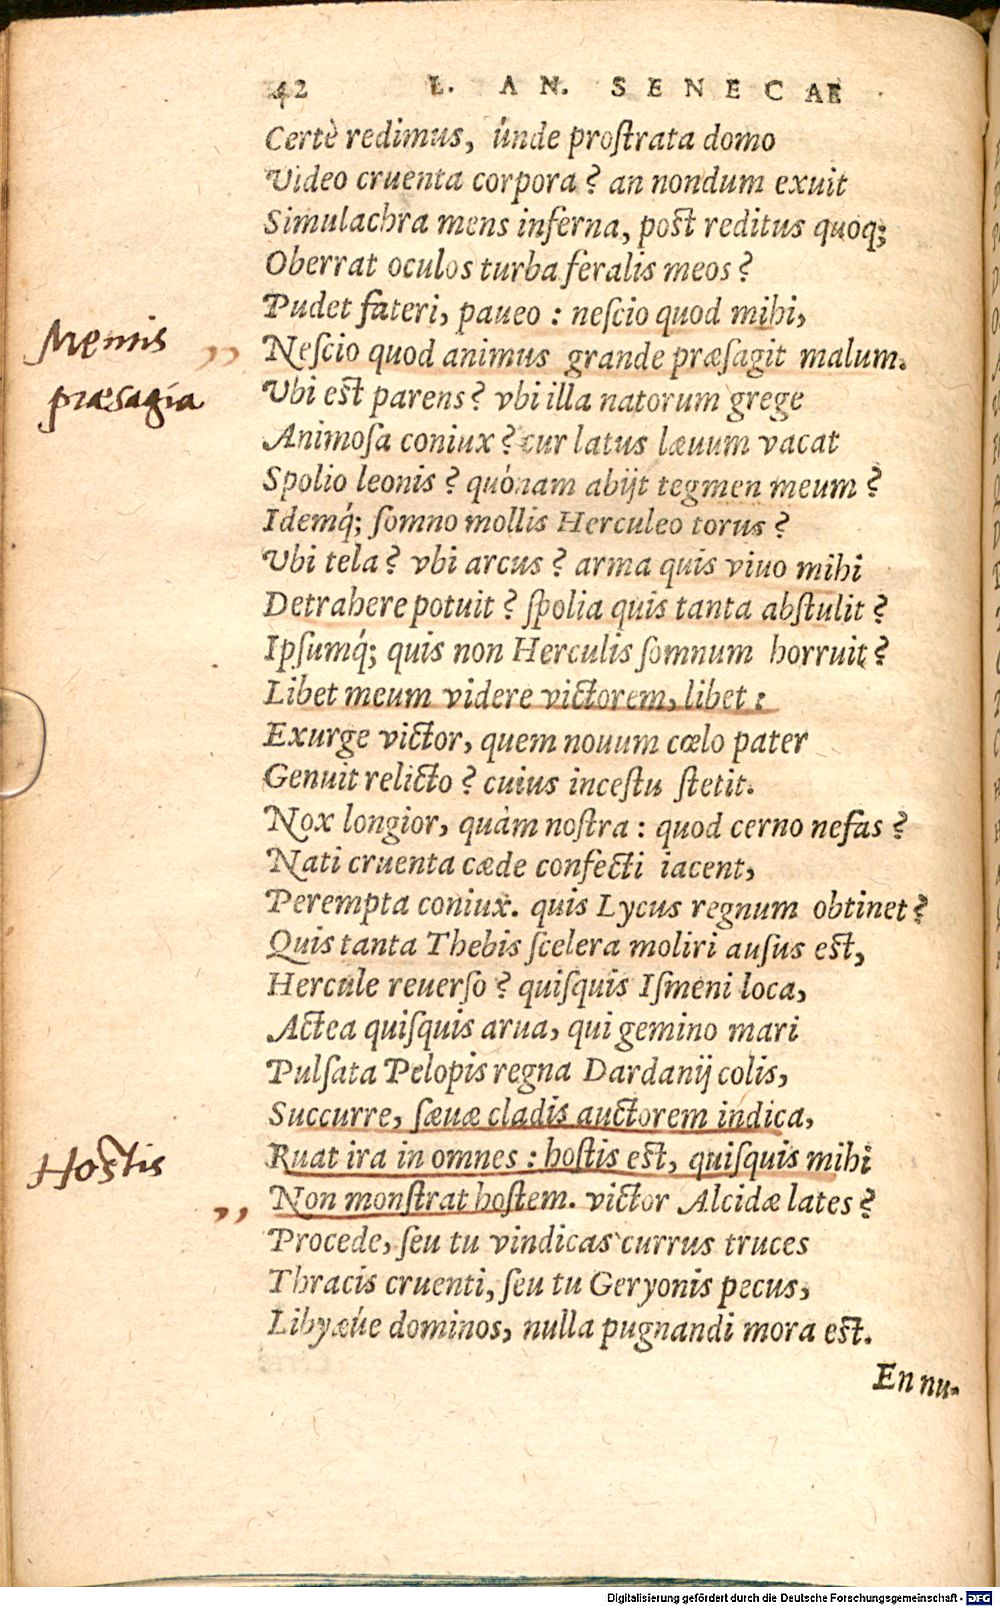 42 L. AN. SENECAE
Certè redimus, únde proſtrata domo
Video cruenta corpora? an nondum exuit
Simulachra mens inferna, poſt reditus quoq;
Oberrat oculos turba feralis meos?
Pudet fateri, paueo : neſcio quod mihi,
Mentis
,, Neſcio quod animus grande præſagit malum.
præsagia
Vbi eſt parens? vbi illa natorum grege
Animoſa coniux? cur latus læuum vacat
Spolio leonis? quónam abijt tegmen meum?
Idemq́; ſomno mollis Herculeo torus?
Vbi tela? vbi arcus? arma quis viuo mihi
Detrahere potuit? ſpolia quis tanta abſtulit?
Ipſumq́; quis non Herculis ſomnum horruit?
Libet meum videre victorem, libet :
Exurge victor, quem nouum cœlo pater
Genuit relicto? cuius inceſtu ſtetit.
Nox longior, quàm noſtra : quod cerno nefas?
Nati cruenta cæde confecti iacent,
Perempta coniux. quis Lycus regnum obtinet?
Quis tanta Thebis ſcelera moliri auſus eſt,
Hercule reuerſo? quiſquis Iſmeni loca,
Actea quiſquis arua, qui gemino mari
Pulſata Pelopis regna Dardanij colis,
Succurre, ſæuæ cladis auctorem indica,
Hostis
Ruat ira in omnes : hoſtis eſt, quiſquis mihi
,, Non monſtrat hoſtem. victor Alcidæ lates?
Procede, ſeu tu vindicas currus truces
Thracis cruenti, ſeu tu Geryonis pecus,
Libyæúe dominos, nulla pugnandi mora eſt.
En nu-
Digitalisierung gefördert durch die Deutsche Forschungsgemeinschaft - DFG